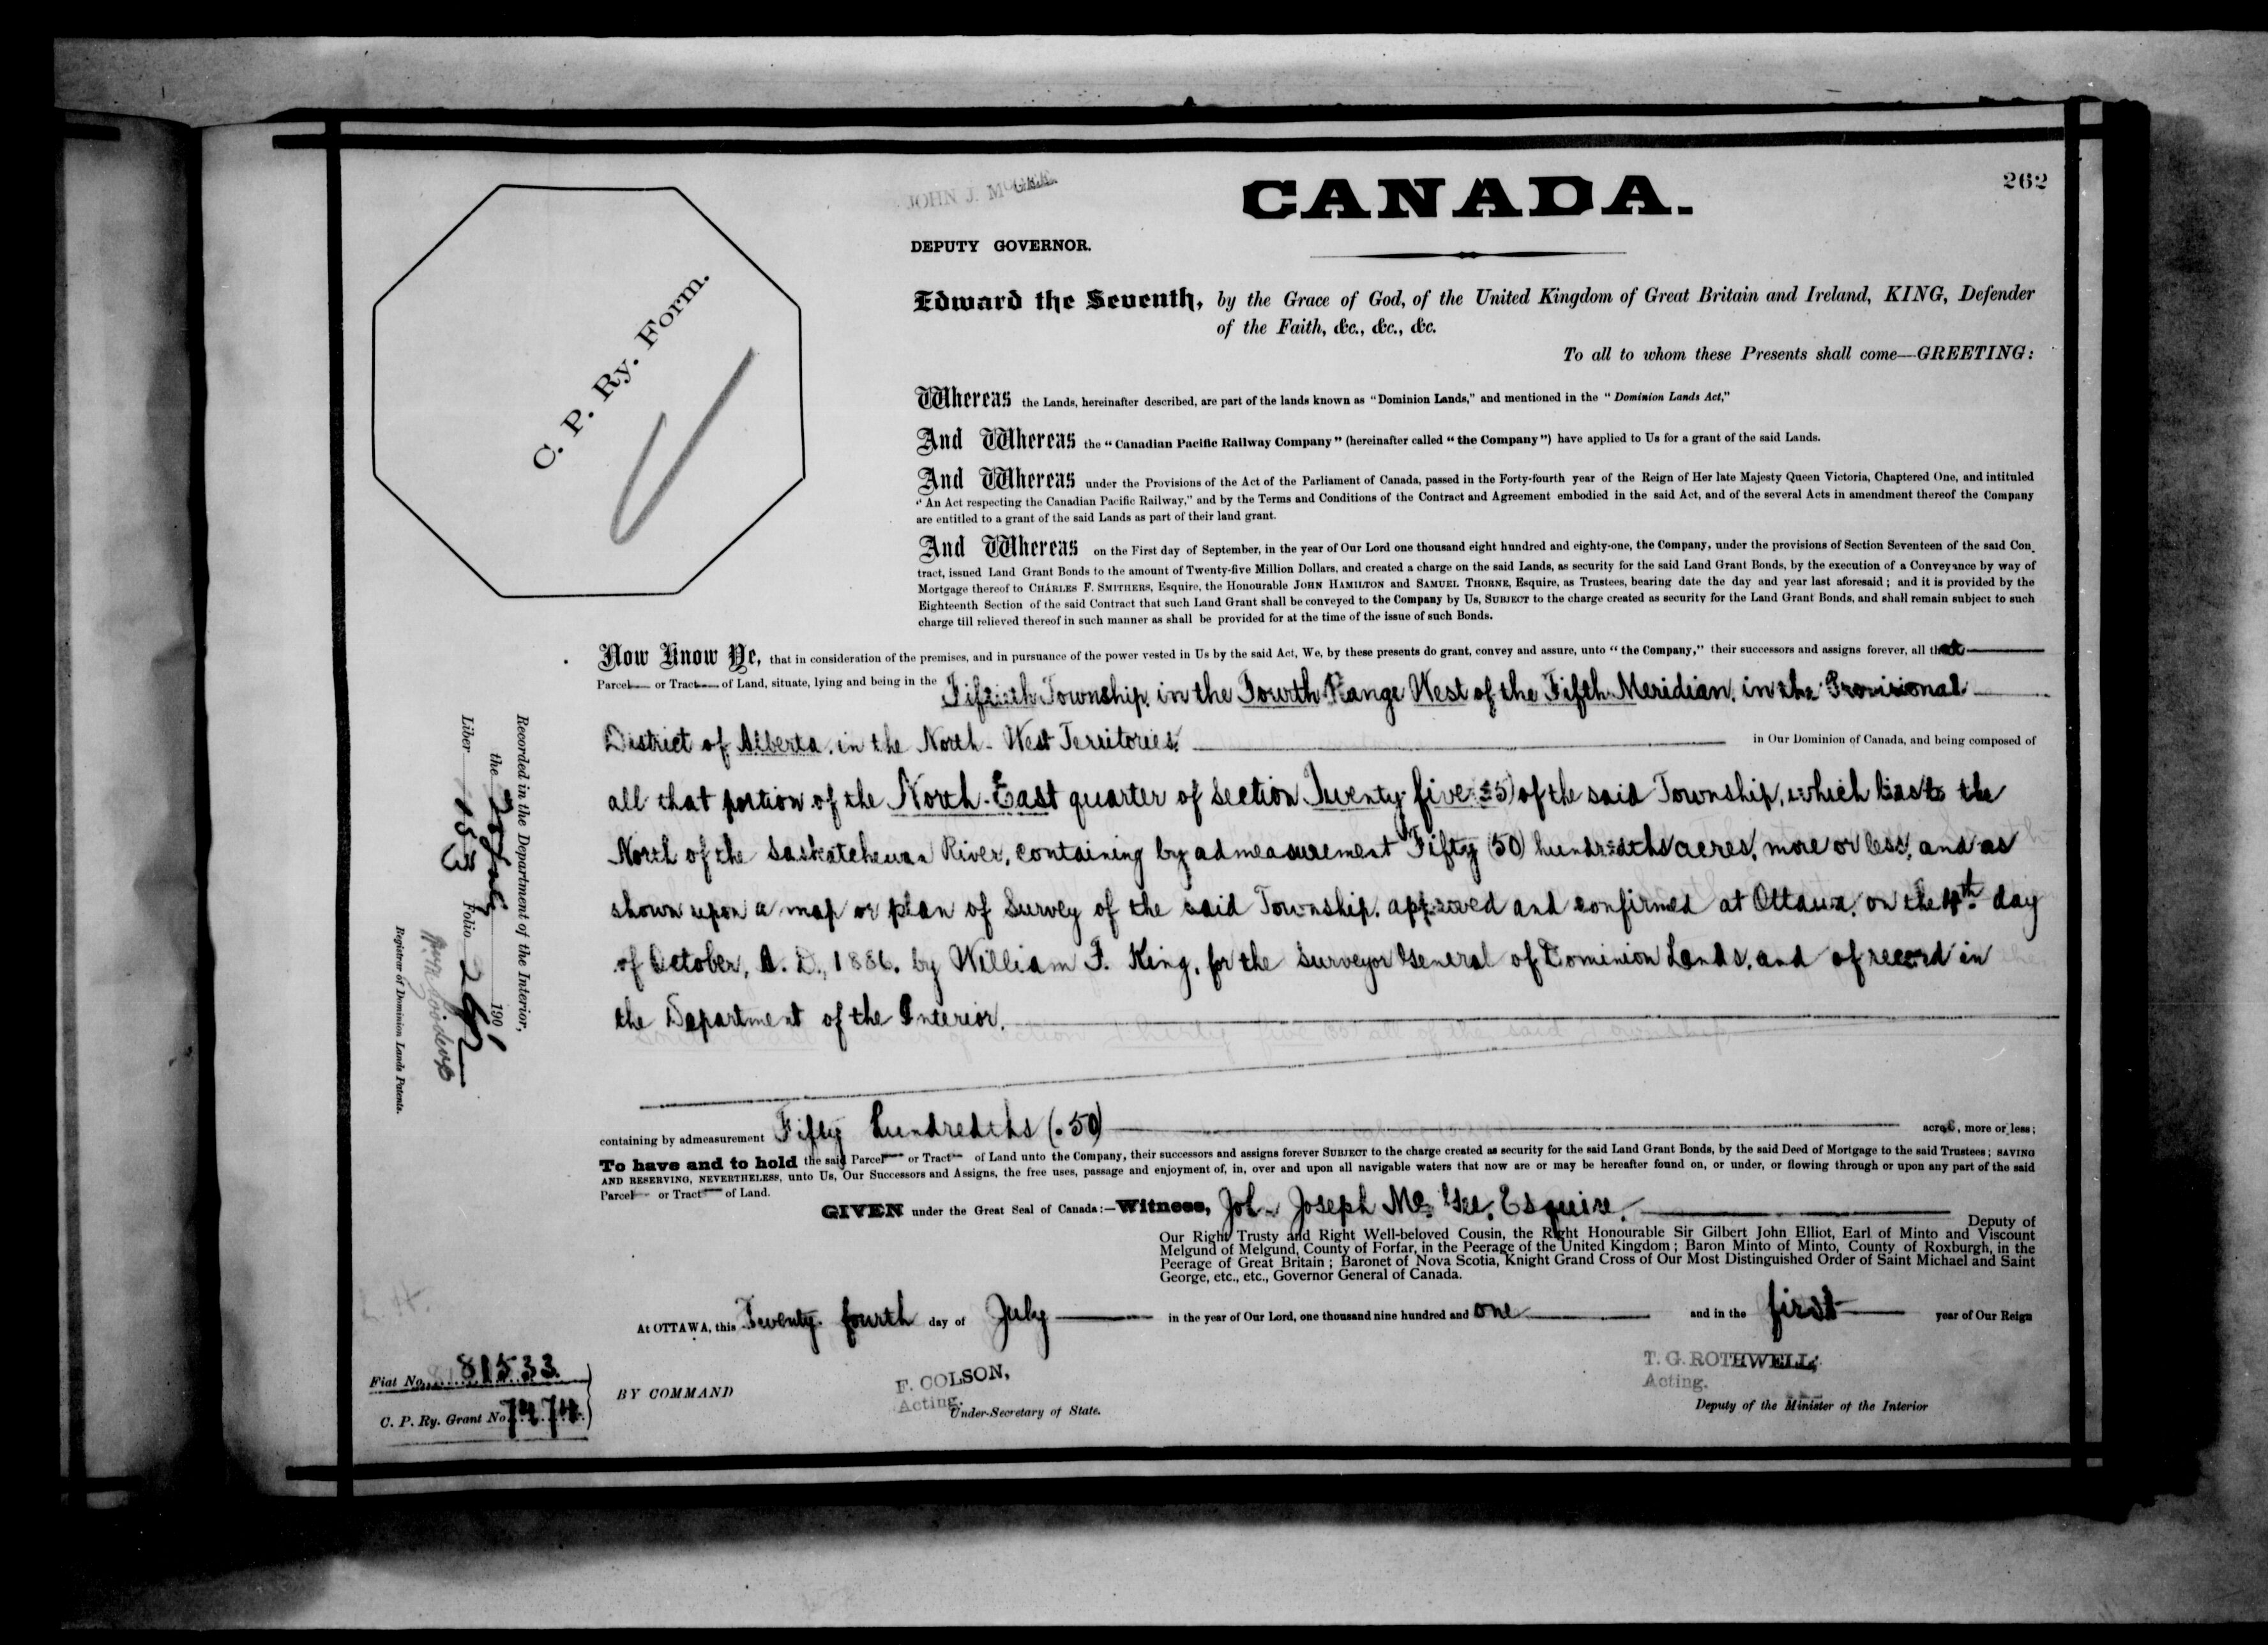 262
JOHN J. McGEE.
CANADA.
DEPUTY GOVERNOR.
C. P. Ry. Form.
Edward the Seventh, by the Grace of God, of the United Kingdom of Great Britain and Ireland, KING, Defender
of the Faith, &c., &c., &c.
To all to whom these Presents shall come—GREETING:
Whereas the Lands, hereinafter described, are part of the lands known as "Dominion Lands," and mentioned in the "Dominion Lands Act,"
And Whereas the "Canadian Pacific Railway Company" (hereinafter called "the Company") have applied to Us for a grant of the said Lands.
And Whereas under the Provisions of the Act of the Parliament of Canada, passed in the Forty-fourth year of the Reign of Her late Majesty Queen Victoria, Chaptered One, and intituled
"An Act respecting the Canadian Pacific Railway," and by the Terms and Conditions of the Contract and Agreement embodied in the said Act, and of the several Acts in amendment thereof the Company
are entitled to a grant of the said Lands as part of their land grant.
And Whereas on the First day of September, in the year of Our Lord one thousand eight hundred and eighty-one, the Company, under the provisions of Section Seventeen of the said Con-
tract, issued Land Grant Bonds to the amount of Twenty-five Million Dollars, and created a charge on the said Lands, as security for the said Land Grant Bonds, by the execution of a Conveyance by way of
Mortgage thereof to CHARLES F. SMITHERS, Esquire, the Honourable JOHN HAMILTON and SAMUEL THORNE, Esquire, as Trustees, bearing date the day and year last aforesaid; and it is provided by the
Eighteenth Section of the said Contract that such Land Grant shall be conveyed to the Company by Us, SUBJECT to the charge created as security for the Land Grant Bonds, and shall remain subject to such
charge till relieved thereof in such manner as shall be provided for at the time of the issue of such Bonds.
Now Know Ye, that in consideration of the premises, and in pursuance of the power vested in Us by the said Act, We, by these presents do grant, convey and assure, unto "the Company," their successors and assigns forever, all that
Parcel or Tract of Land, situate, lying and being in the Fiftieth Township, in the Fourth Range West of the Fifth Meridian, in the Provisional
District of Alberta, in the North-West Territories, in Our Dominion of Canada, and being composed of
all that portion of the North-East quarter of Section Twenty-five (25) of the said Township, which lies to the
North of the Saskatchewan River, containing by admeasurement Fifty (50) hundredths acres, more or less, and as
shown upon a map or plan of Survey of the said Township, approved and confirmed at Ottawa, on the 4th day
of October, A. D., 1886, by William F. King, for the Surveyor General of Dominion Lands, and of record in
the Department of the Interior.
containing by admeasurement Fifty hundredths (.50) acres, more or less;
To have and to hold the said Parcel or Tract of Land unto the Company, their successors and assigns forever SUBJECT to the charge created as security for the said Land Grant Bonds, by the said Deed of Mortgage to the said Trustees; SAVING
AND RESERVING, NEVERTHELESS, unto Us, Our Successors and Assigns, the free uses, passage and enjoyment of, in, over and upon all navigable waters that now are or may be hereafter found on, or under, or flowing through or upon any part of the said
Parcel or Tract of Land.
GIVEN under the Great Seal of Canada:—Witness, Joh- Joseph McGee, Esquire. Deputy of
Our Right Trusty and Right Well-beloved Cousin, the Right Honourable Sir Gilbert John Elliot, Earl of Minto and Viscount
Melgund of Melgund, County of Forfar, in the Peerage of the United Kingdom; Baron Minto of Minto, County of Roxburgh, in the
Peerage of Great Britain; Baronet of Nova Scotia, Knight Grand Cross of Our Most Distinguished Order of Saint Michael and Saint
George, etc., etc., Governor General of Canada.
At OTTAWA, this Twenty-fourth day of July in the year of Our Lord, one thousand nine hundred and one and in the first year of Our Reign
BY COMMAND
F. COLSON,
Acting.
Under-Secretary of State.
T. G. ROTHWELL,
Acting.
Deputy of the Minister of the Interior
Fiat No. 81533
C. P. Ry. Grant No. 7474
Recorded in the Department of the Interior,
the 190 1
Liber 153 Folio 262
Registrar of Dominion Lands Patents.